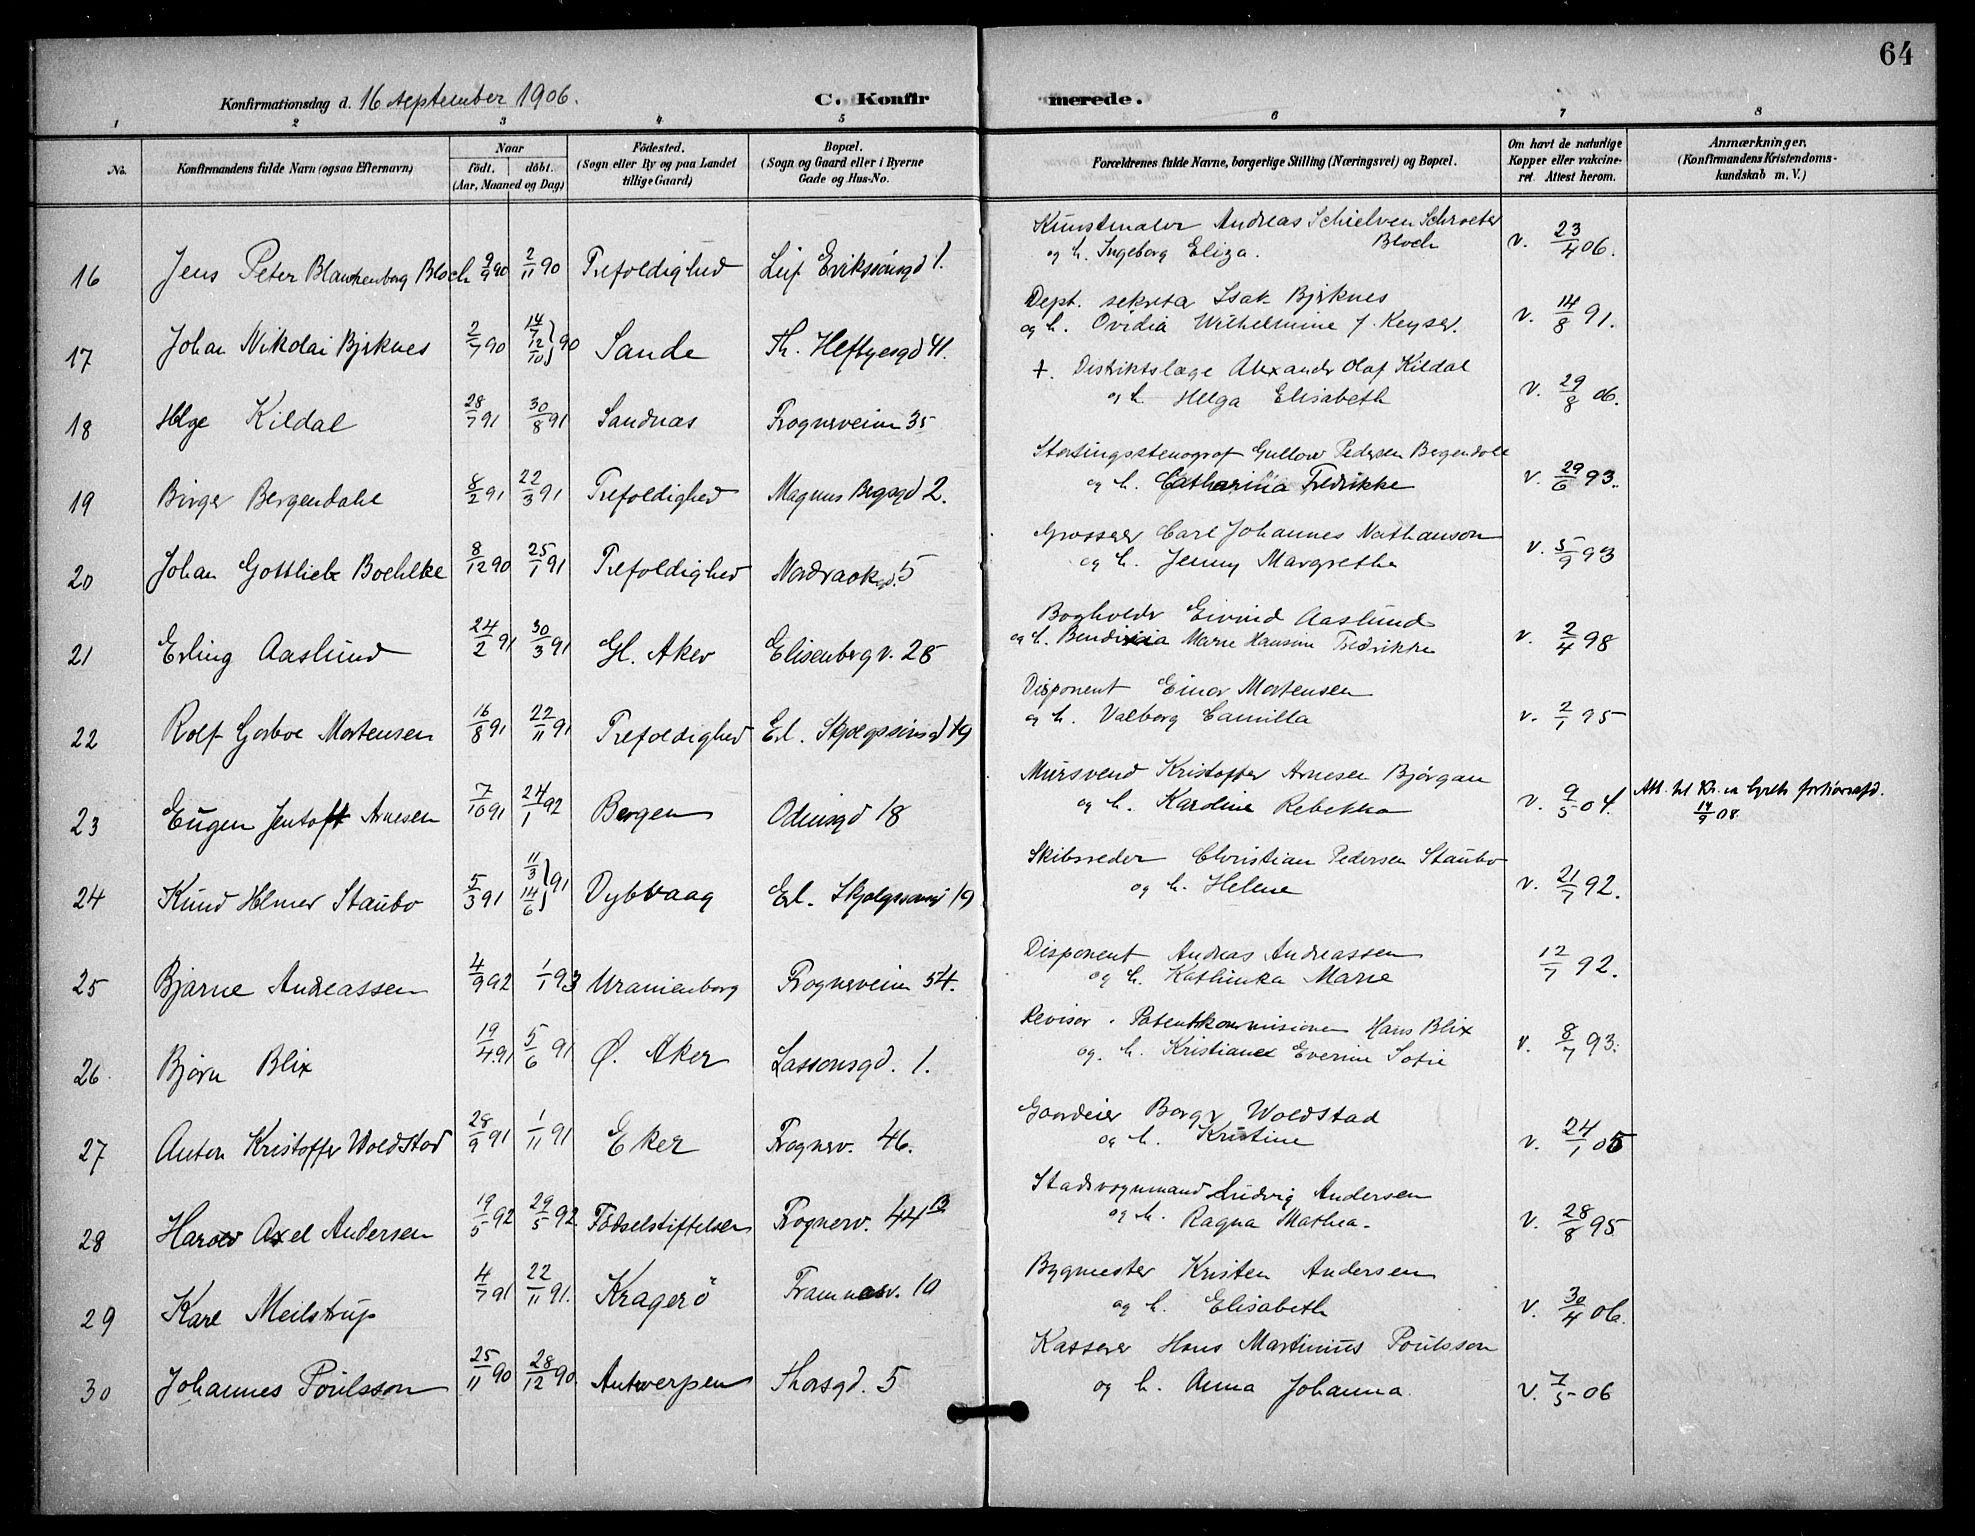 64
Konfirmationsdag d. 16 September 1906.
C. Konfirmerede.
1 2 3 4 5 6 7 8
No.
Konfirmandens fulde Navn (ogsaa Efternavn)
Naar
födt. döbt.
(Aar, Maaned og Dag)
Födested.
(Sogn eller By og paa Landet
tillige Gaard)
Bopæl.
(Sogn og Gaard eller i Byerne
Gade og Hus-No.
Forældrenes fulde Navne, borgerlige Stilling (Næringsvei) og Bopæl.
Om havt de naturlige
Kopper eller vakcine-
ret. Attest herom.
Anmærkninger.
(Konfirmandens Kristendoms-
kundskab m. V.)
Kunstmaler Andreas Schielven Schroeter
og h. Ingeborg Eliza. Bloch
16 Jens Peter Blanckenborg Bloch 9/9 90 2/11 90 Trefoldighed Leif Erikssönsgd 1. v. 23/4 06.
Dept. sekretær Isak Bjerknes
og h. Ovidia Wilhelmine f. Keyser.
17 Johan Nikolai Bjerknes 2/7 90 14/7 12/10 } 90 Sande Th. Heftyesgd 41. v. 14/8 91.
+. Distriktslæge Alexander Olaf Kildal
og h. Helga Elisabeth
18 Helge Kildal 28/7 91 30/8 91 Sandnæs Frognerveien 35 v. 29/8 06.
Stortingsstenograf Gullow Pedersen Bergendahl
og h. Catharina Fredrikke
19 Birger Bergendahl 8/2 91 22/3 91 Trefoldighed Magnus Bergsgd 2. v. 29/6 93.
Grosserer Carl Johannes Nathanson
og h. Jenny Margrethe
20 Johan Gottlieb Boehlke 8/12 90 25/1 91 Trefoldighed Nordraaksgd. 5 v. 5/9 93
Bogholder Eivind Aaslund
og h. Bendicia Marie Hansine Fredrikke
21 Erling Aaslund 24/2 91 30/3 91 Gl. Aker Elisenberg v. 28 v. 2/4 98
Disponent Einar Mortensen
og h. Valborg Camilla
22 Rolf Gorboe Mortensen 16/8 91 22/11 91 Trefoldighed Erl. Skjalgssönsgd 19 v. 2/1 95
Mursvend Kristoffer Arnesen Björgan
og h. Karoline Rebekka
23 Eugen Jentoft Arnesen 7/10 91 24/1 92 Bergen Odinsgd 18 v. 9/5 04.
14/9 08.
Skibsreder Christian Pedersen Staubo
og h. Helene
24 Knud Helmer Staubo 5/3 91 11/3 14/6 } 91 Dybvaag Erl. Skjalgssönsgd 19 v. 21/7 92.
Disponent Andreas Andreassen
og h. Kathinka Marie
25 Bjarne Andreassen 4/9 92 1/1 93 Uranienborg Frognerveien 54. 12/7 92.
Revisor i Patentkommisionen Hans Blix
og. h. Kristiane Everine Sofie
26 Bjørn Blix 19/4 91 5/6 91 Ø. Aker Lassonsgd. 1. v. 8/7 93.
Gaardeier Borger Woldstad
og h. Kristine
27 Anton Kristoffer Woldstad 28/9 91 1/11 91 Eker Frognerv. 46. v. 24/1 05
Stadsvognmand Ludvig Andersen
og h. Ragna Mathea.
28 Harald Axel Andersen 19/5 92 29/5 92 Födselstiftelsen Frognerv. 44 B v. 28/8 95
Bygmester Kristen Andersen
og h. Elisabeth
29 Karl Meilstrup 4/7 91 22/11 91. Kragerö Framnæsv. 10 v. 30/4 06.
Kasserer Hans Martinius Poulsson
og h. Anna Johanna
30 Johannes Poulsson 25/11 90 28/12 90 Antwerpen Thorsgd. 5 v. 7/5 06